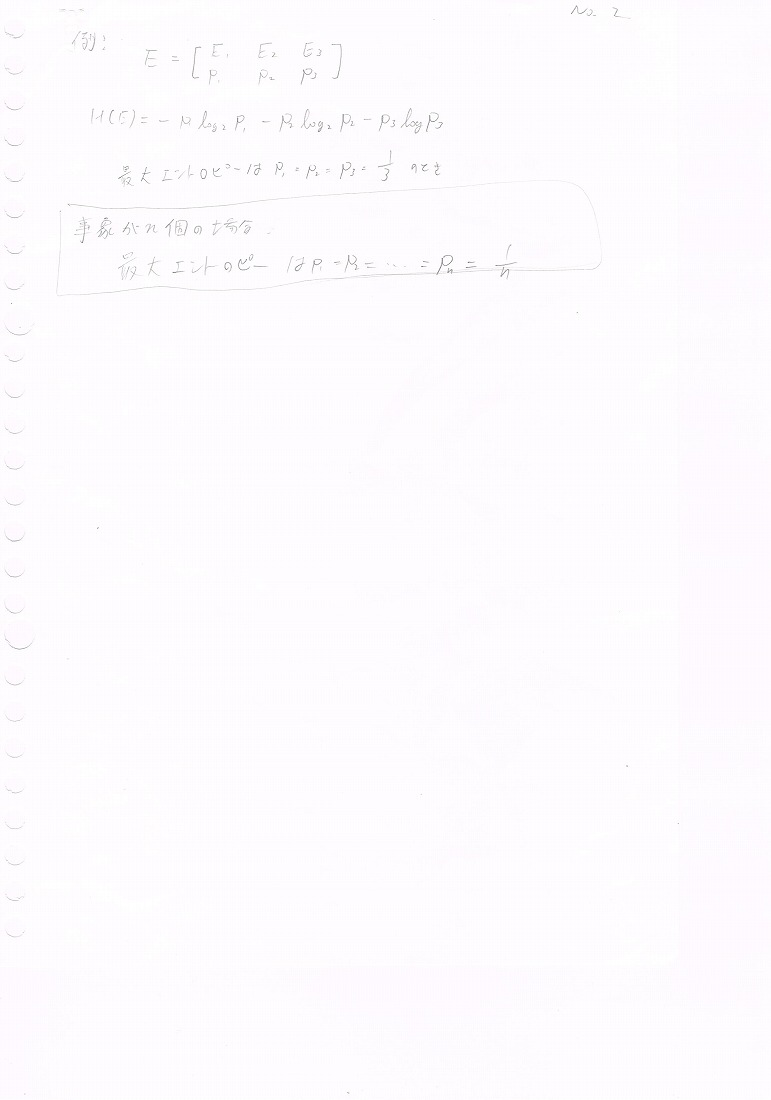 No. 2
例:
E = [ E₁ E₂ E₃
p₁ p₂ p₃ ]
H(E) = - p₁ log₂ p₁ - p₂ log₂ p₂ - p₃ log p₃
最大エントロピーは p₁ = p₂ = p₃ = 1/3 のとき
事象がn個の場合.
最大エントロピー は p₁ = p₂ = ... = pₙ = 1/n